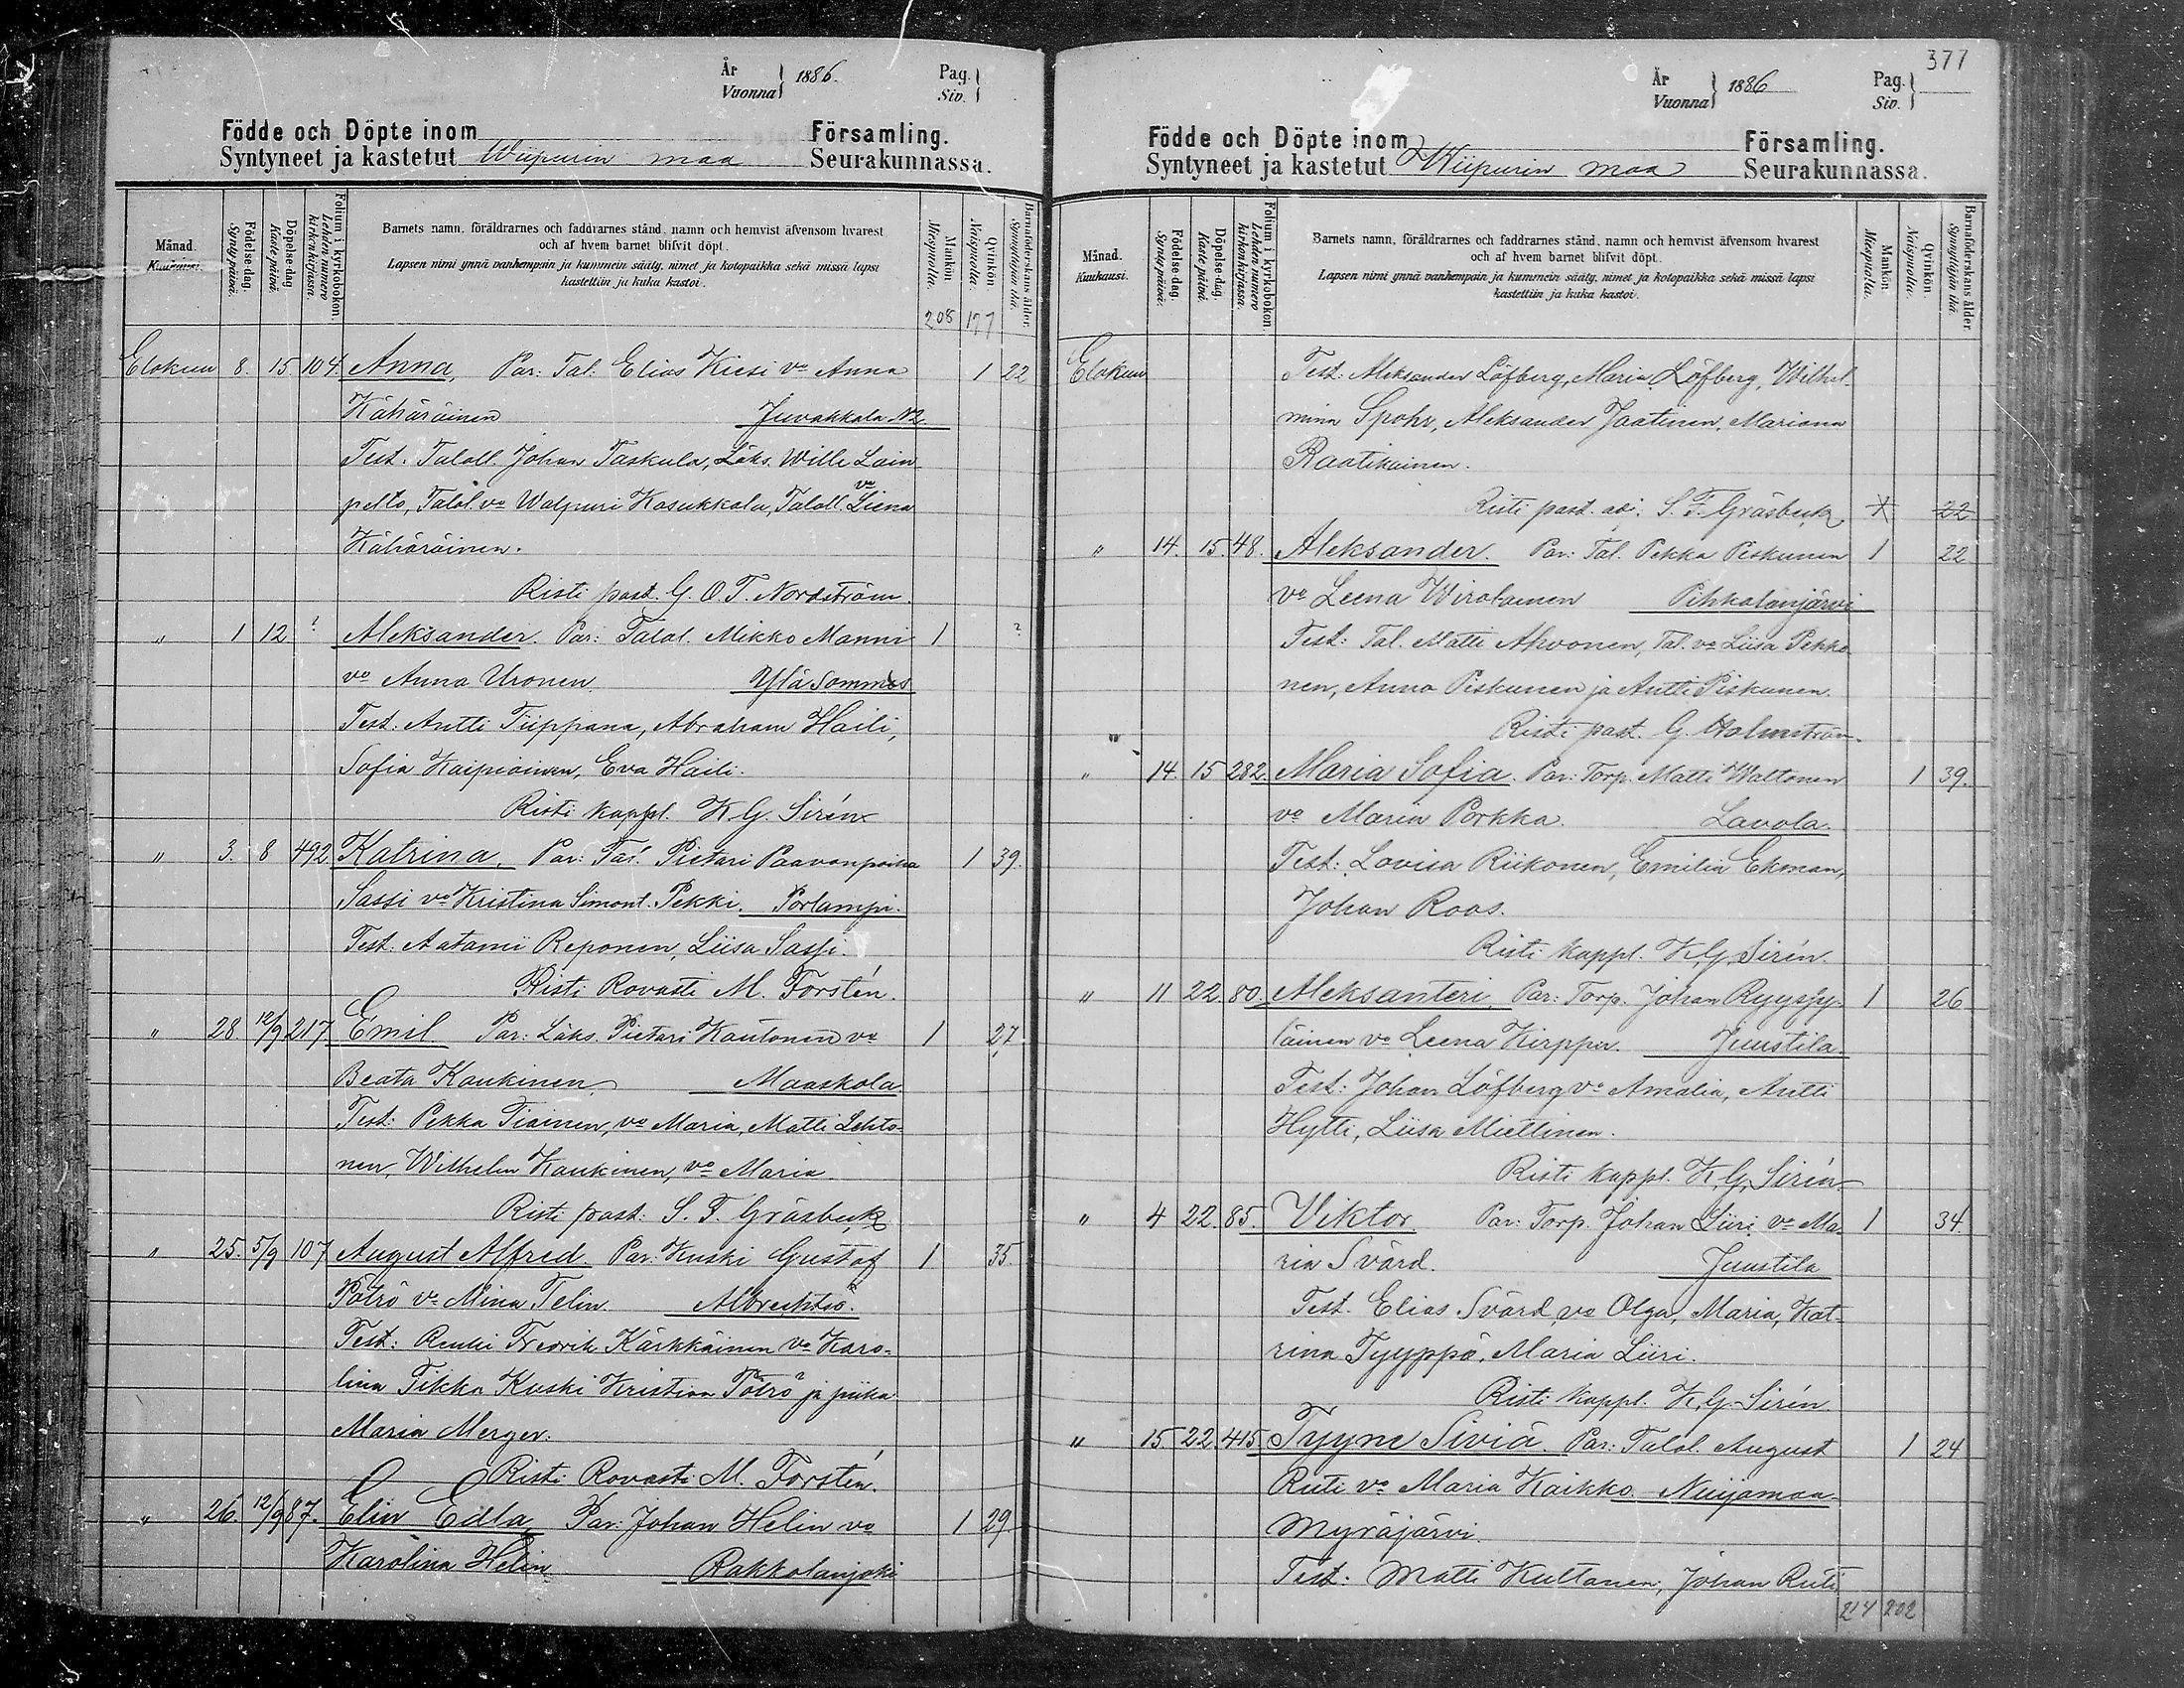 År
Vuonna } 1886.
Pag.
Siv. }
Födde och Döpte inom Församling.
Syntyneet ja kastetut Wiipurin maa Seurakunnassa.
Månad.
Kuukausi.
Födelse-dag.
Synty päivä.
Döpelse-dag
Kaste päivä.
Folium i kyrkobokon.
Lehden numero
kirkonkirjassa.
Barnets namn, föräldrarnes och faddrarnes stånd, namn och hemvist äfvensom hvarest
och af hvem barnet blifvit döpt.
Lapsen nimi ynnä vanhempain ja kummein sääty, nimet ja kotopaikka sekä missä lapsi
kastettiin ja kuka kastoi.
Mankön
Miespuolta.
Qvinkön
Naispuolta.
Barnaföderskans ålder.
Synnyttäjän ikä.
208 177
Elokuu 8. 15 104. Anna, Par: Tal. Elias Kiesi vo Anna 1 22
Kähäräinen Juvakkala N2.
Test. Taloll. Johan Taskula, Läks. Wille Lain
pelto, Talol. vo Walpuri Kosukkala, Taloll. vo Liena
Kähäräinen.
Risti past. G. O. T. Nordström.
" 1 12 ? Aleksander. Par: Talol. Mikko Manni 1 ?
vo Anna Uronen. Ylä Sommes
Test: Antti Tiippana, Abraham Haili,
Sofia Kaipiainen, Eva Haili.
Risti kappl. K. G. Sirén
" 3. 8 492 Katrina. Par: Tal. Pietari Paavonpoika 1 39.
Sassi vo Kristina Simont. Pekki. Porlampi.
Test: Aatami Reponen, Liisa Sassi.
Risti Rovasti M. Forstén.
" 28 12/9 217 Emil Par: Läks. Pietari Kautonen vo 1 27
Beata Kaukinen, Maaskola
Test: Pekka Tiainen, vo Maria, Matti Lehto-
nen, Wilhelm Kaukinen, vo Maria.
Risti past: S. F. Gräsbeck
" 25. 5/9 107 August Alfred. Par: Kuski Gustaf 1 35.
Pötrö vo Mina Telin. Albrechtsö.
Test: Renki Fredrik Kärkkäinen vo Karo-
lina Tikka Kuski Kristian Pötrö ja piika
Maria Merger.
Risti Rovasti M. Forstén.
" 26 12/9 87. Elin Edla, Par: Johan Helin vo 1 29
Karolina Helin. Rakkolanjoki
377
År
Vuonna } 1886
Pag.
Siv. }
Födde och Döpte inom Församling.
Syntyneet ja kastetut Wiipurin maa Seurakunnassa.
Månad.
Kuukausi.
Födelse-dag.
Synty päivä.
Döpelse-dag.
Kaste päivä.
Folium i kyrkobokon
Lehden numero
kirkonkirjassa.
Barnets namn, föräldrarnes och faddrarnes stånd, namn och hemvist äfvensom hvarest
och af hvem barnet blifvit döpt.
Lapsen nimi ynnä vanhempain ja kummein sääty, nimet ja kotopaikka sekä missä lapsi
kastettiin ja kuka kastoi.
Mankön
Miespuolta.
Qvinkön
Naispuolta.
Barnaföderskans ålder
Synnyttäjän ikä.
Elokuu Test: Aleksander Löfberg, Maria Löfberg, Wilhel-
mina Spohr, Aleksander Jaatinen, Mariana
Raatikainen.
Risti past. adj. S. F. Gräsbeck 1 22
" 14. 15. 48. Aleksander. Par: Tal. Pekka Piskunen 1 22
vo Leena Wirolainen Pihkalanjärvi
Test: Tal. Matti Ahvonen, Tal. vo Liisa Pekko
nen, Anna Piskunen ja Antti Piskunen.
Risti past. G. Holmström.
" 14. 15 282 Maria Sofia. Par: Torp. Matti Waltonen 1 39.
vo Maria Porkka. Lavola.
Test: Lovisa Riikonen, Emilia Ekman,
Johan Roos.
Risti kappl. K. G. Sirén.
" 11 22. 80 Aleksanteri. Par: Torp. Johan Ryysy- 1 26
läinen vo Leena Kirppu. Juustila.
Test: Johan Löfberg vo Amalia, Antti
Hytti, Liisa Miettinen.
Risti kappl. K. G. Sirén
" 4 22. 85. Viktor. Par: Torp. Johan Liiri vo Ma- 1 34.
ria Svärd. Juustila
Test. Elias Svärd, vo Olga, Maria, Kat-
rina Tyyppö, Maria Liiri.
Risti kappl. K. G. Sirén.
" 15 22. 415 Tyyne Siviä. Par: Talol. August 1 24
Ruti vo Maria Kaikko. Nuijamaa
Myräjärvi.
Test: Matti Kultanen, Johan Ruti,
214 202